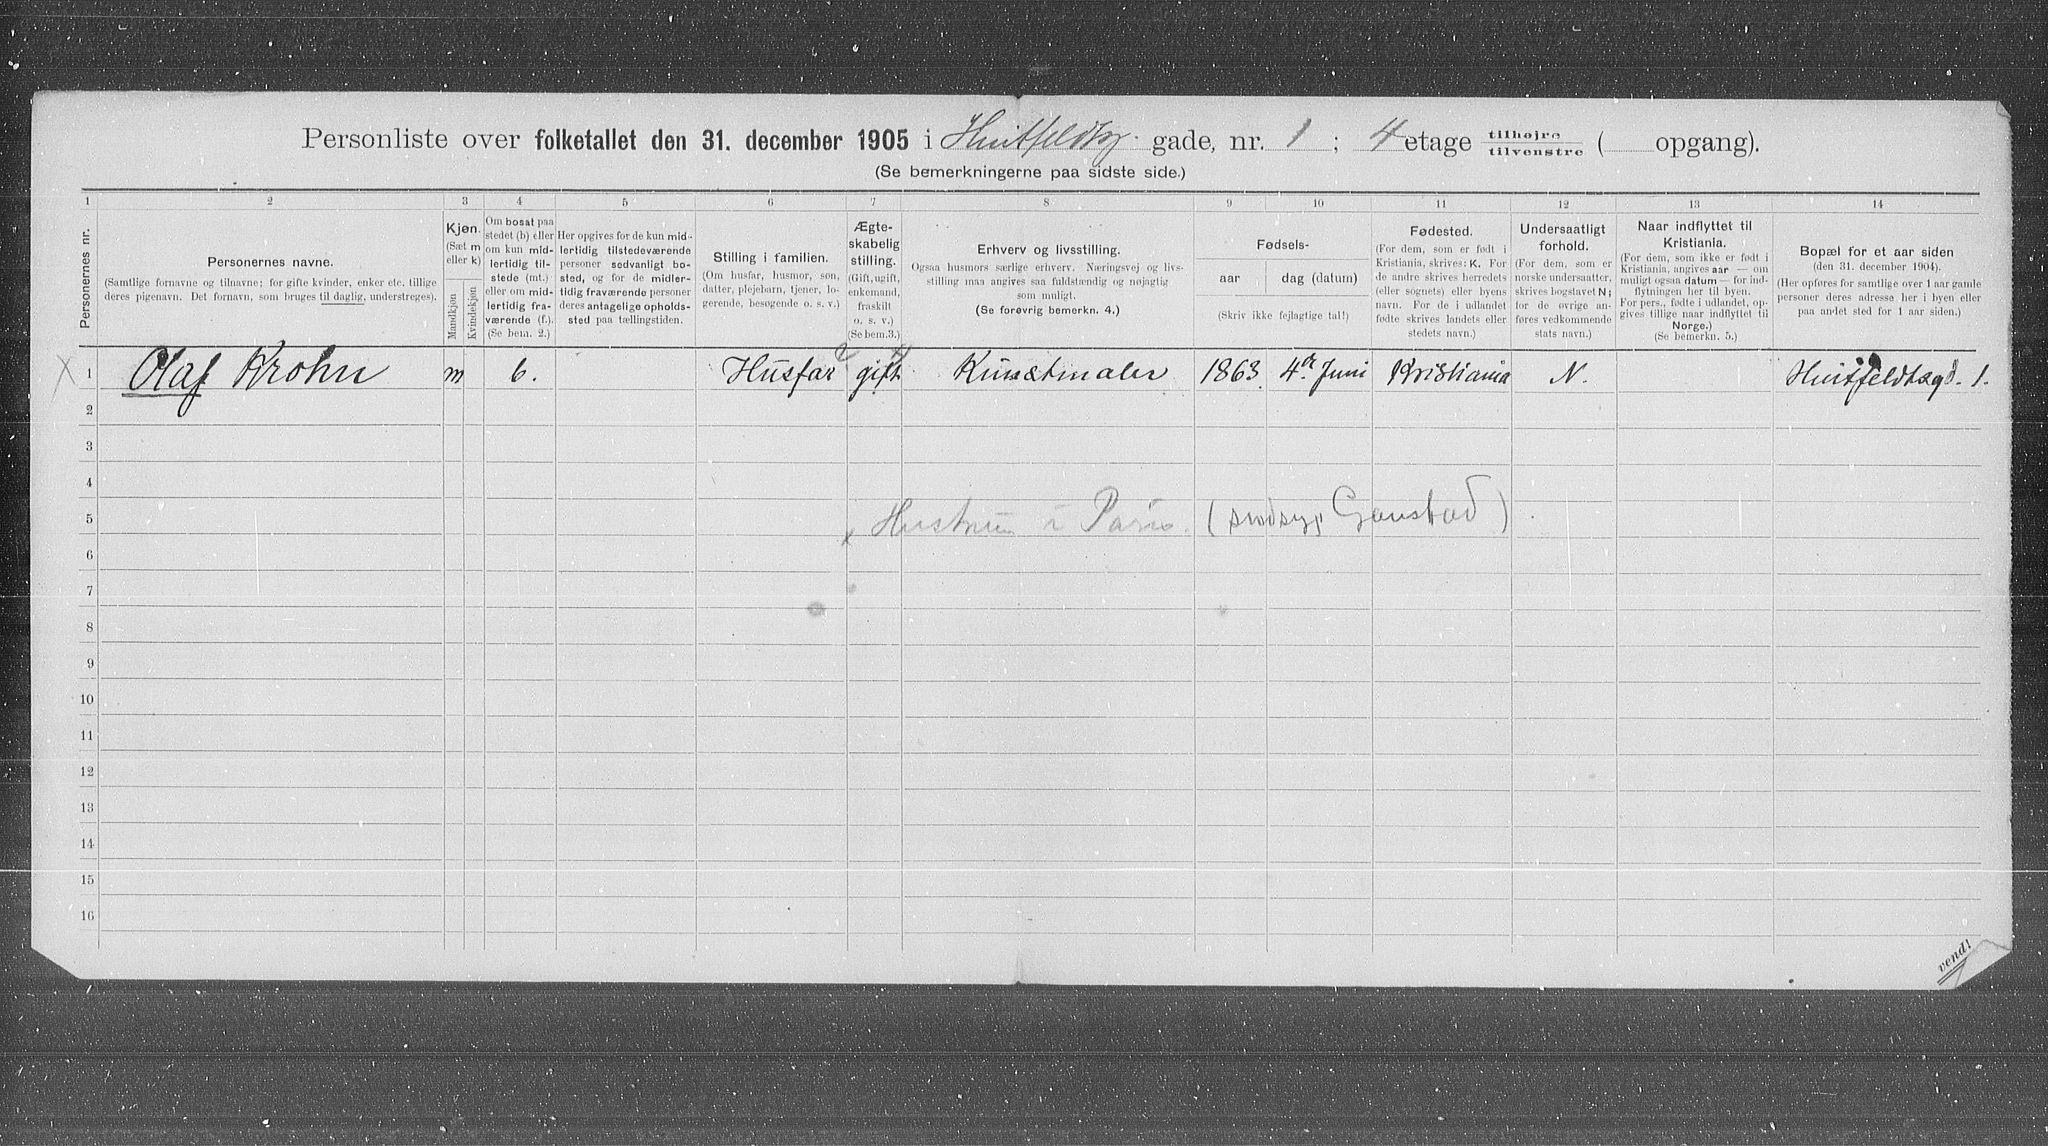 Personliste over folketallet den 31. december 1905 i Huitfeldtsg. gade, nr. 1 ; 4 etage tilhøjre tilvenstre ( opgang).
(Se bemerkningerne paa sidste side.)
1 2 3 4 5 6 7 8 9 10 11 12 13 14
Personernes nr.
Personernes navne.
(Samtlige fornavne og tilnavne; for gifte kvinder, enker etc. tillige
deres pigenavn. Det fornavn, som bruges til daglig, understreges).
Kjøn.
(Sæt m
eller k)
Mandkjøn
Kvindekjøn
Om bosat paa
stedet (b) eller
om kun mid-
lertidig til-
stede (mt.)
eller om mid-
lertidig fra-
værende (f.).
(Se bem. 2.)
Her opgives for de kun mid-
lertidig tilstedeværende
personer sedvanligt bo-
sted, og for de midler-
tidig fraværende personer
deres antagelige opholds-
sted paa tællingstiden.
Stilling i familien.
(Om husfar, husmor, søn,
datter, plejebarn, tjener, lo-
gerende, besøgende o. s. v.)
Ægte-
skabelig
stilling.
(Gift, ugift,
enkemand,
fraskilt
o. s. v.)
(Se bem.3.)
Erhverv og livsstilling.
Ogsaa husmors særlige erhverv. Næringsvej og livs-
stilling maa angives saa fuldstændig og nøjagtig
som muligt.
(Se forøvrig bemerkn. 4.)
Fødsels-
aar dag (datum)
(Skriv ikke fejlagtige tal!)
Fødested.
(For dem, som er født i
Kristiania, skrives: K. For
de andre skrives herredets
(eller sognets) eller byens
navn. For de i udlandet
fødte skrives landets eller
stedets navn.)
Undersaatligt
forhold.
(For dem, som er
norske undersaatter,
skrives bogstavet N;
for de øvrige an-
føres vedkommende
stats navn.)
Naar indflyttet til
Kristiania.
(For dem, som ikke er født i
Kristiania, angives aar — om
muligt ogsaa datum — for ind-
flytningen her til byen.
For pers., fødte i udlandet, op-
gives tillige naar indflyttet til
Norge.)
(Se bemerkn. 5.)
Bopæl for et aar siden
(den 31. december 1904).
(Her opføres for samtlige over 1 aar gamle
personer deres adresse her i byen eller
paa andet sted for 1 aar siden.)
X 1 Olaf Krohn m b. Husfar gift Kunstmaler 1863. 4de Juni Kristiania N. Huitfeldtsgd. 1.
2
3
4
5 x Hustruen i Paris. (sindsyg, Gaustad).
6
7
8
9
10
11
12
13
14
15
16
vend!